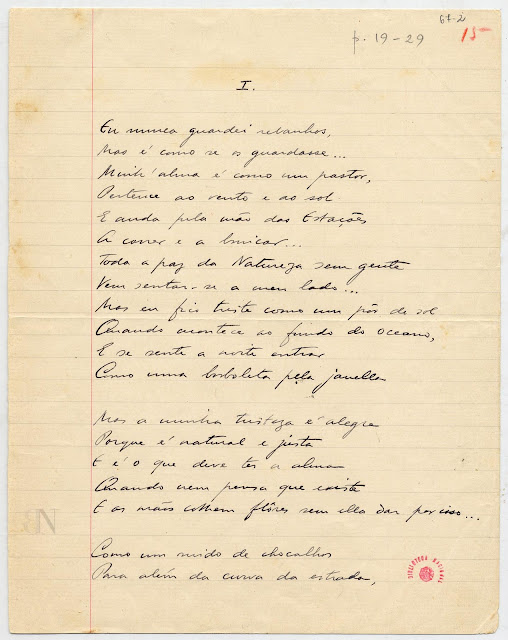 67-2
p. 19-29
15
I.
Eu nunca guardei rebanhos,
Mas é como se os guardasse...
Minh'alma é como um pastor,
Pertence ao vento e ao sol
E anda pela mão das Estações
A correr e a brincar...
Toda a paz da Natureza sem gente
Vem sentar-se a meu lado...
Mas eu fico triste como um pôr de sol
Quando arrefece ao fundo do oceano,
E se sente a noite entrar
Como uma borboleta pela janella
Mas a minha tristeza é alegre
Porque é natural e justa
E é o que deve ter a alma
Quando nem pensa que existe
E as mãos colhem flôres sem ella dar por isso...
Como um ruido de chocalhos
Para além da curva da estrada,
BIBLIOTECA NACIONAL
N